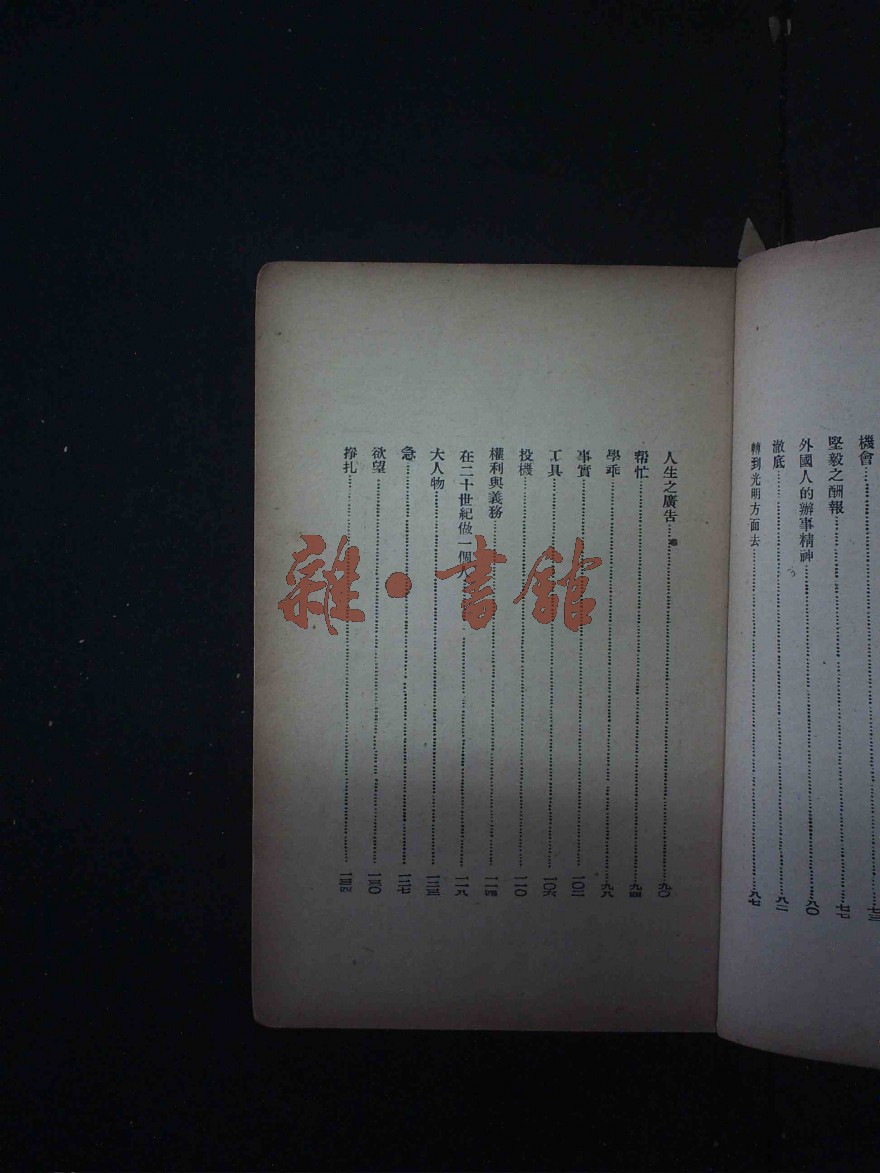 機會……七三
堅毅之酬報……七七
外國人的辦事精神……八〇
澈底……八二
轉到光明方面去……八七
人生之廣告……九〇
帮忙……九四
學乖……九八
事實……一〇二
工具……一〇六
投機……一一〇
權利與義務……一一四
在二十世紀做一個人……一一八
大人物……一二三
急……一二七
欲望……一三〇
掙扎……一三四
雜·書館